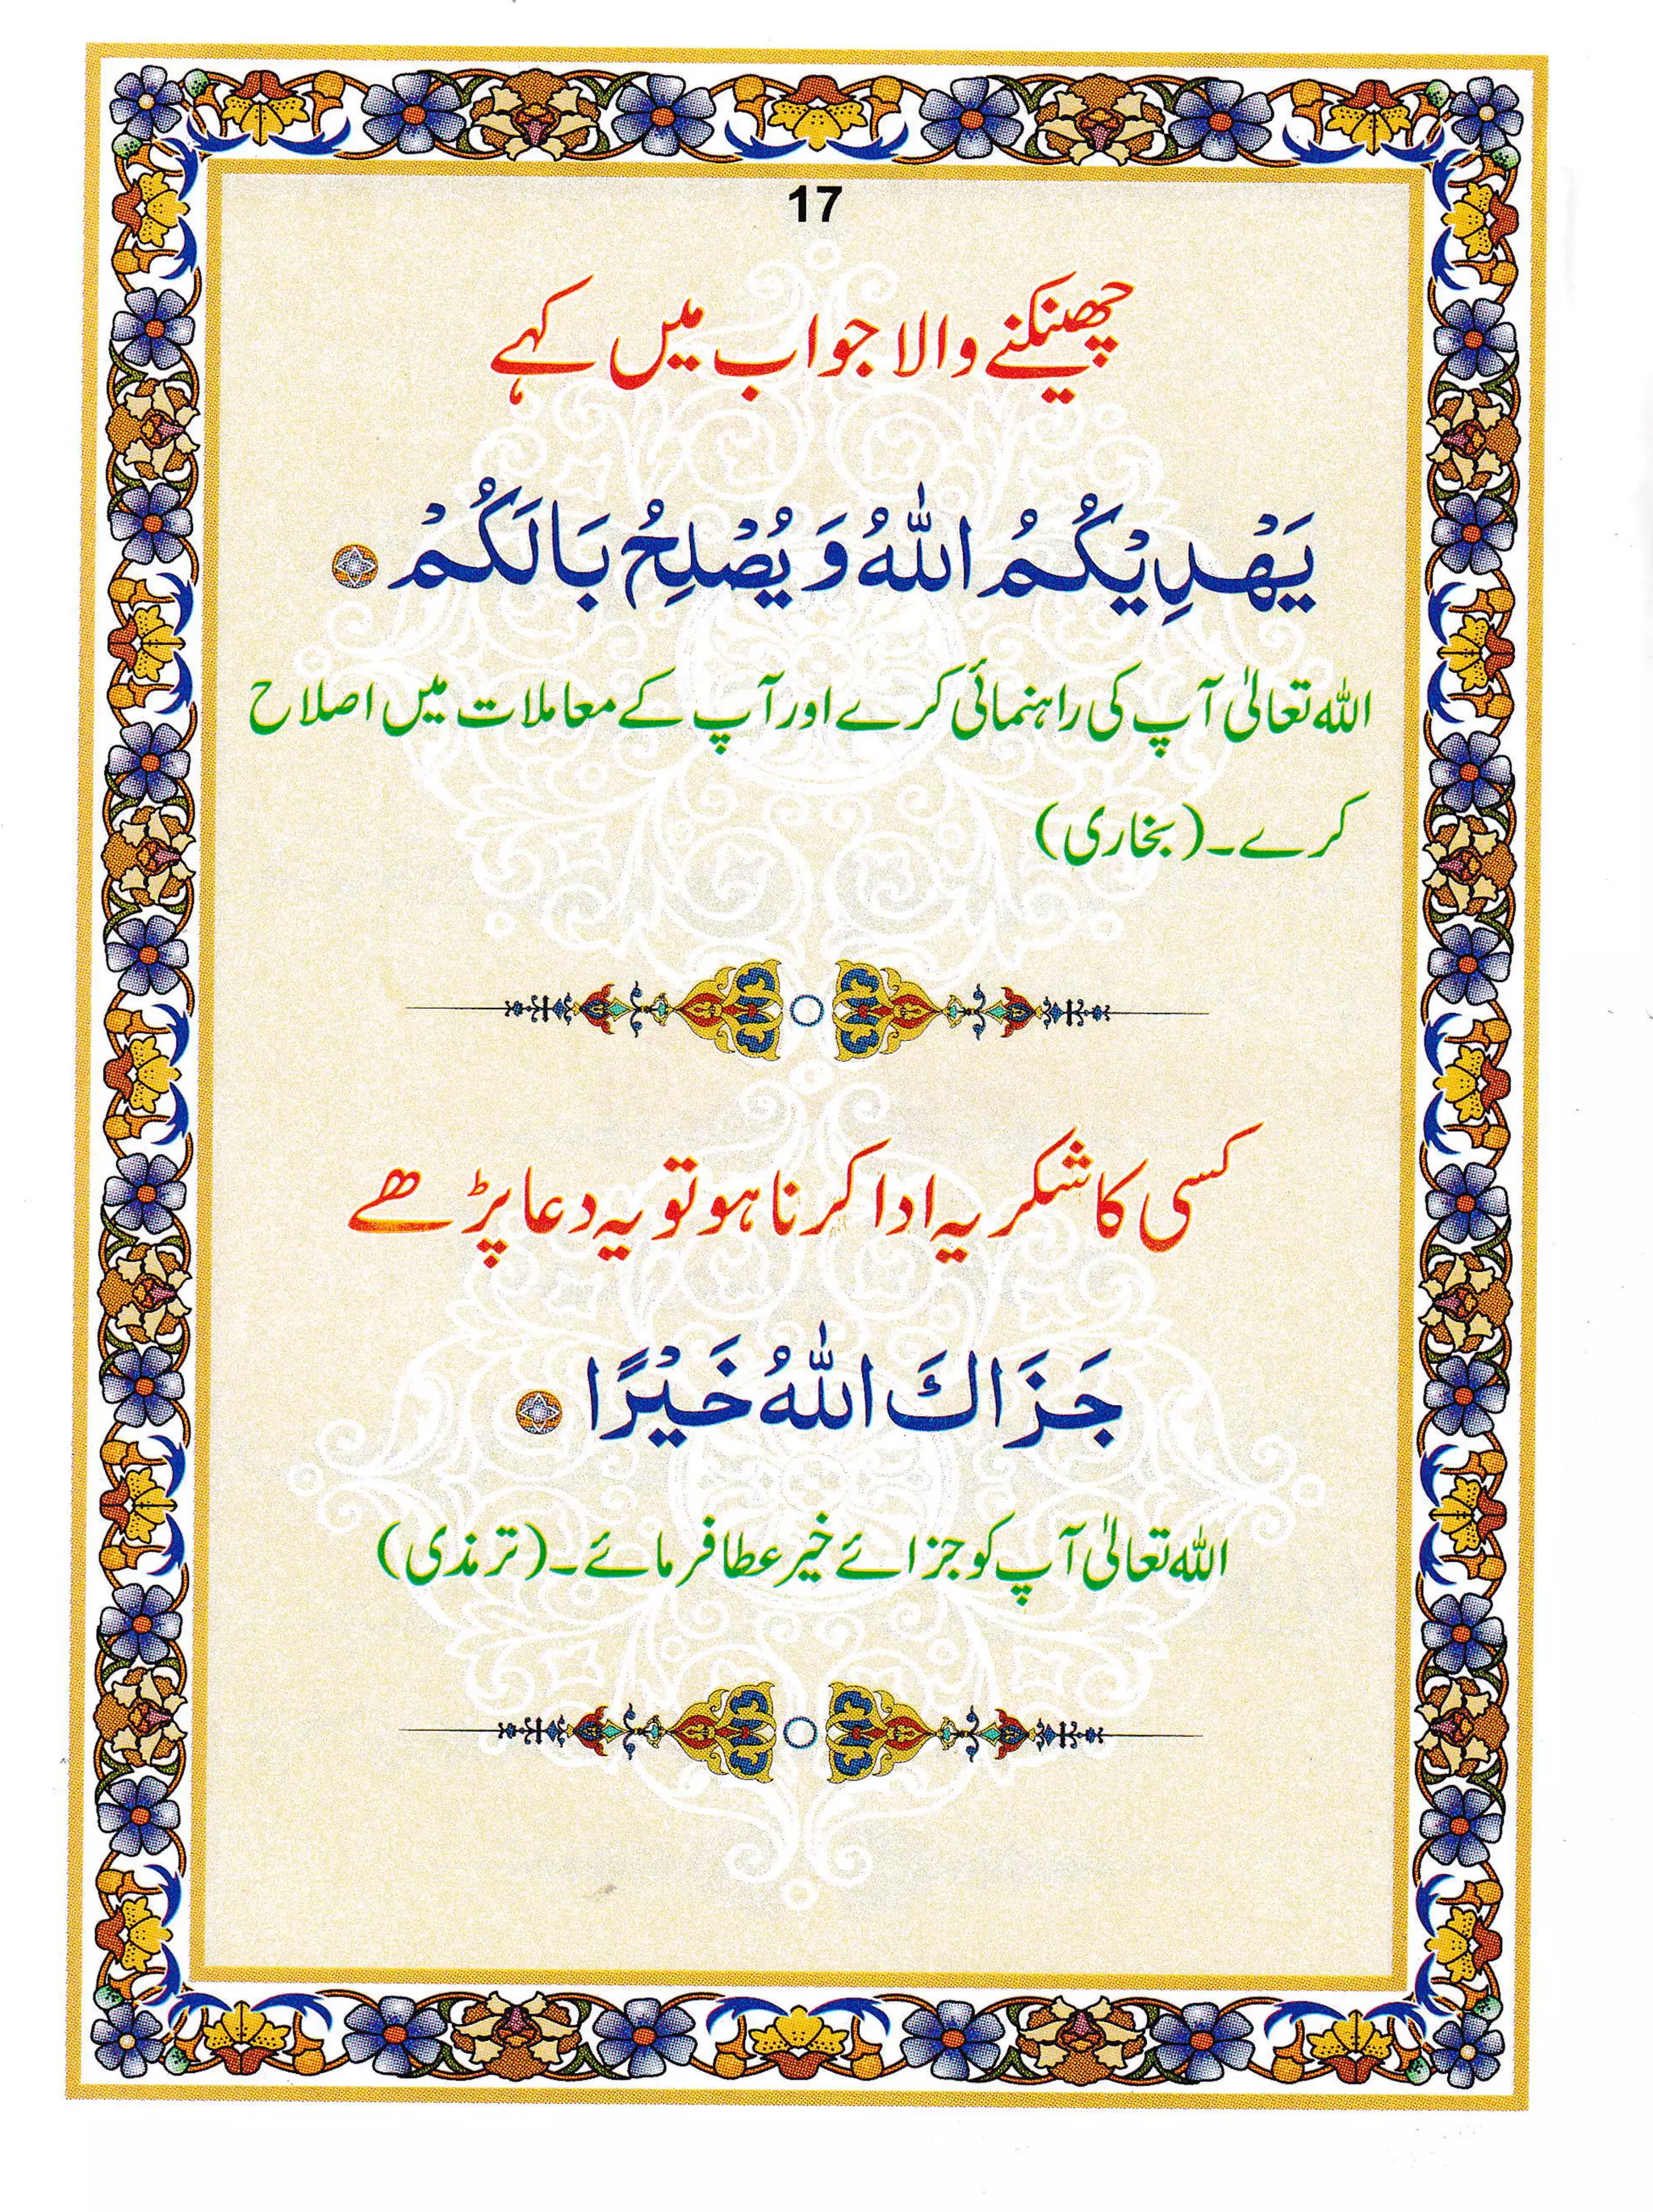 17
چھینکنے والا جواب میں کہے
يَهْدِيْكُمُ اللّٰهُ وَ يُصْلِحُ بَالَكُمْ
اللہ تعالیٰ آپ کی راہنمائی کرے اور آپ کے معاملات میں اصلاح
کرے۔ (بخاری)
کسی کا شکریہ ادا کرنا ہو تو یہ دعا پڑھے
جَزَاكَ اللّٰهُ خَيْرًا
اللہ تعالیٰ آپ کو جزائے خیر عطا فرمائے۔ (ترمذی)